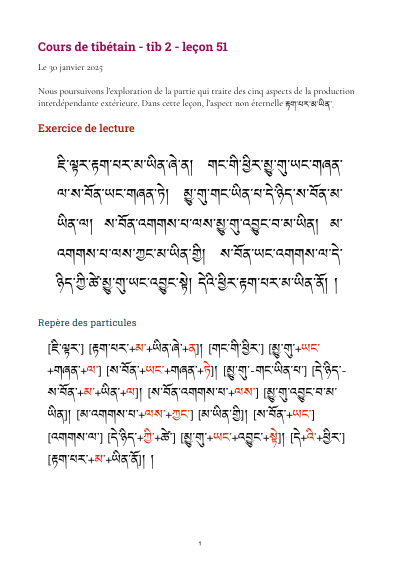 Cours de tibétain - tib 2 - leçon 51
Le 30 janvier 2025
Nous poursuivons l'exploration de la partie qui traite des cinq aspects de la production
interdépendante extérieure. Dans cette leçon, l'aspect non éternelle རྟག་པར་མ་ཡིན་.
Exercice de lecture
ཇི་ལྟར་རྟག་པར་མ་ཡིན་ཞེ་ན། གང་གི་ཕྱིར་མྱུ་གུ་ཡང་གཞན་
ལ་ས་བོན་ཡང་གཞན་ཏེ། མྱུ་གུ་གང་ཡིན་པ་དེ་ཉིད་ས་བོན་མ་
ཡིན་ལ། ས་བོན་འགགས་པ་ལས་མྱུ་གུ་འབྱུང་བ་མ་ཡིན། མ་
འགགས་པ་ལས་ཀྱང་མ་ཡིན་གྱི། ས་བོན་ཡང་འགགས་ལ་དེ་
ཉིད་ཀྱི་ཚེ་མྱུ་གུ་ཡང་འབྱུང་སྟེ། དེའི་ཕྱིར་རྟག་པར་མ་ཡིན་ནོ། །
Repère des particules
[ཇི་ལྟར་] [རྟག་པར་+མ་+ཡིན་ཞེ་+ན]། [གང་གི་ཕྱིར་] [མྱུ་གུ་+ཡང་
+གཞན་+ལ་] [ས་བོན་+ཡང་+གཞན་+ཏེ]། [མྱུ་གུ་-གང་ཡིན་པ་] [དེ་ཉིད་-
ས་བོན་+མ་+ཡིན་+ལ]། [ས་བོན་འགགས་པ་+ལས་] [མྱུ་གུ་འབྱུང་བ་མ་
ཡིན]། [མ་འགགས་པ་+ལས་+ཀྱང་] [མ་ཡིན་གྱི]། [ས་བོན་+ཡང་]
[འགགས་ལ་] [དེ་ཉིད་+ཀྱི་+ཚེ་] [མྱུ་གུ་+ཡང་+འབྱུང་+སྟེ]། [དེ+འི་+ཕྱིར་]
[རྟག་པར་+མ་+ཡིན་ནོ]། །
1